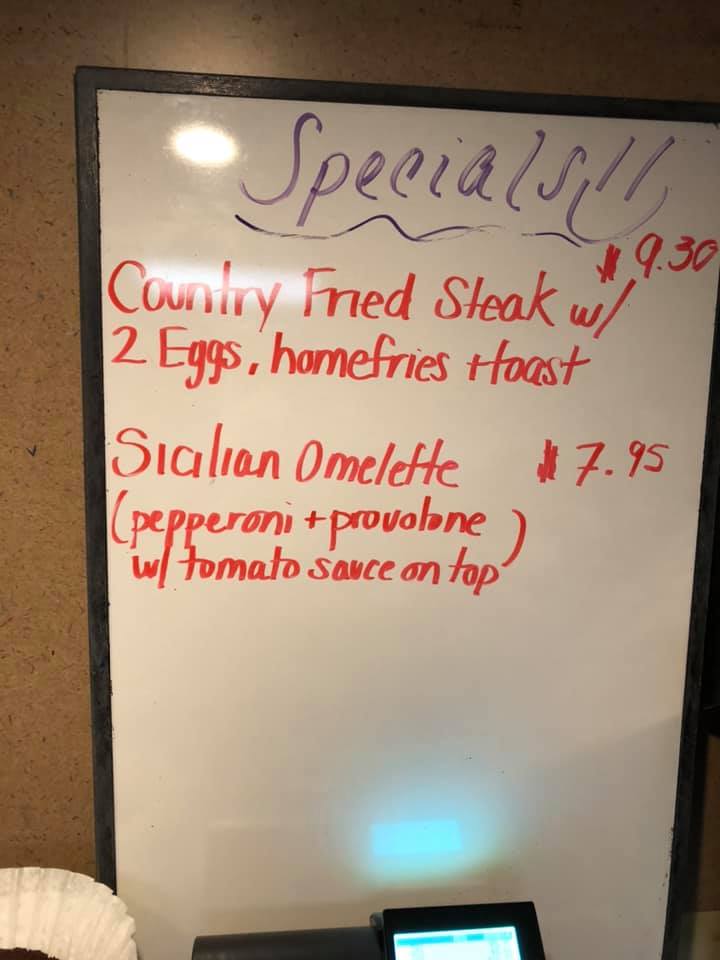 Specials!!
$ 9.30
Country Fried Steak w/
2 Eggs, homefries + toast
Sicilian Omelette $ 7.95
(pepperoni + provolone
w/ tomato sauce on top)